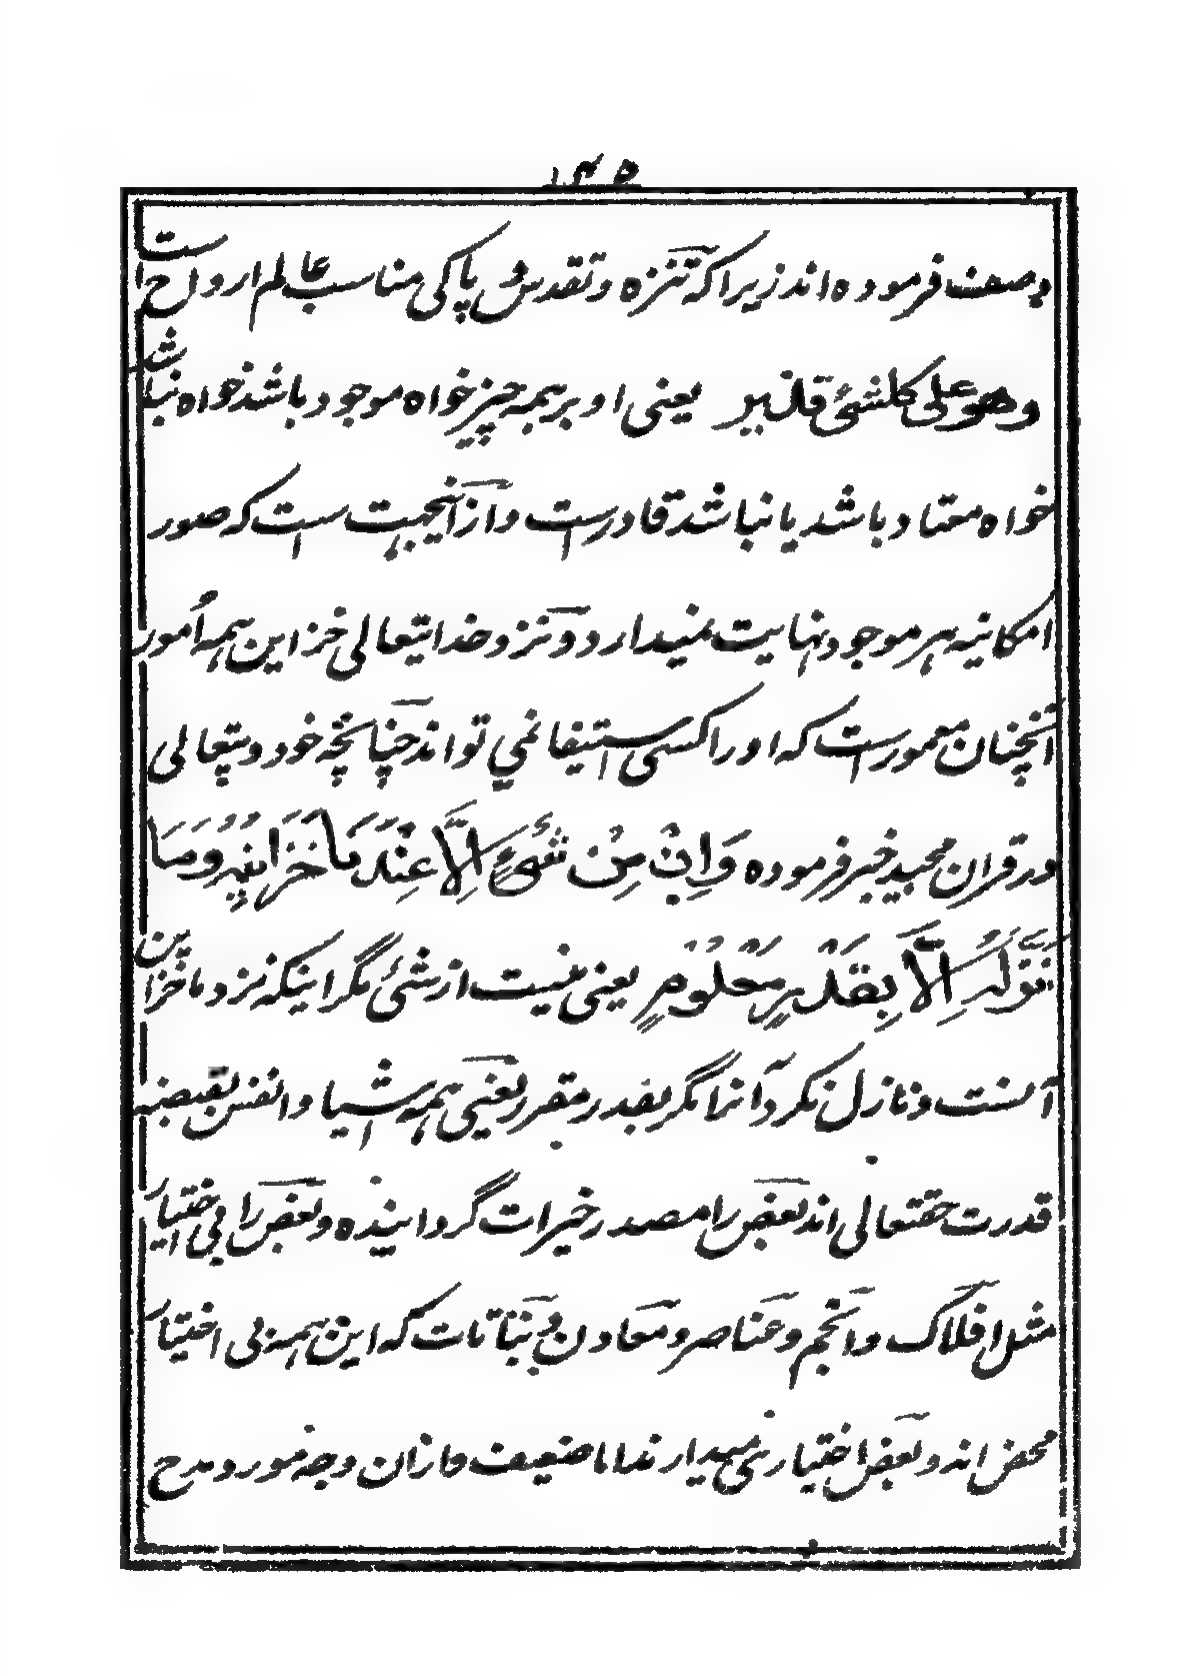 ۱۳۵
وصف فرموده اند زیرا که تنزه و تقدس و پاکی مناسب عالم ارواح است
وهو علی کل شئ قدیر یعنی او بر همه چیز خواه موجود باشد خواه نباشد
خواه معتاد باشد یا نباشد قادرست و از آنجهت ست که صور
امکانیه هر موجود نهایت نمیدارد و نزد خدایتعالی خزاین همه امور
آنچنان معمورست که او را کسی استیفا نمی تواند چنانچه خود وتعالی
در قران مجید خبر فرموده وَاِنْ مِنْ شَیْءٍ اِلَّا عِنْدَنَا خَزَائِنُهٗ وَمَا
نُنَزِّلُهٗ اِلَّا بِقَدَرٍ مَعْلُومٍ یعنی نیست از شئ مگر اینکه نزد ما خزاین
آنست و نازل نکرد آنرا مگر بقدر مقرر یعنی همه اشیا و انفس بقبضه
قدرت حقتعالی اند بعض را مصدر خیرات گردانیده و بعض را بی اختیار
مثل افلاک و انجم و عناصر و معادن و نباتات که این همه بی اختیار
محض اند و بعض اختیار هم میدارند اما ضعیف و ازان وجه مورد مدح